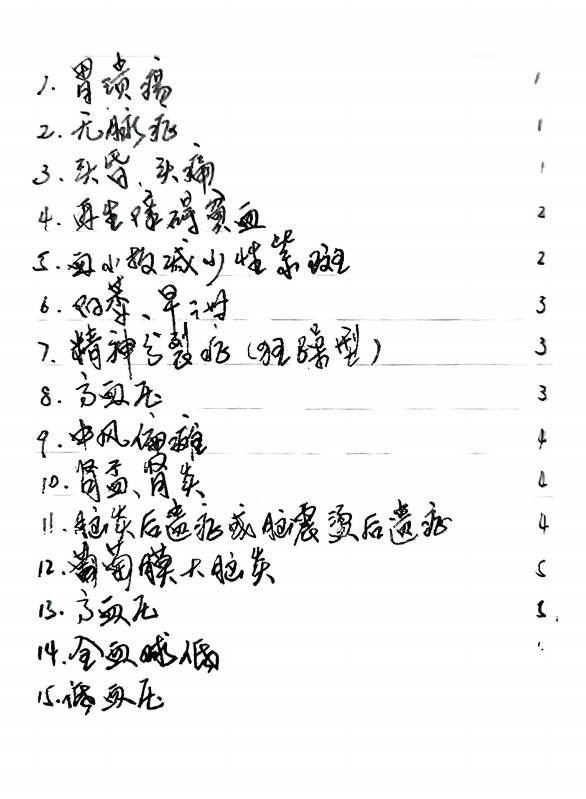 1. 胃溃疡 1
2. 无脉症 1
3. 头昏、头痛 1
4. 再生障碍贫血 2
5. 血小板减少性紫斑 2
6. 阳萎、早泄 3
7. 精神分裂症(狂躁型) 3
8. 高血压 3
9. 中风偏瘫 4
10. 肾盂、肾炎 4
11. 脑炎后遗症或脑震荡后遗症 4
12. 葡萄膜大脑炎 5
13. 高血压 5
14. 全血减低
15. 低血压